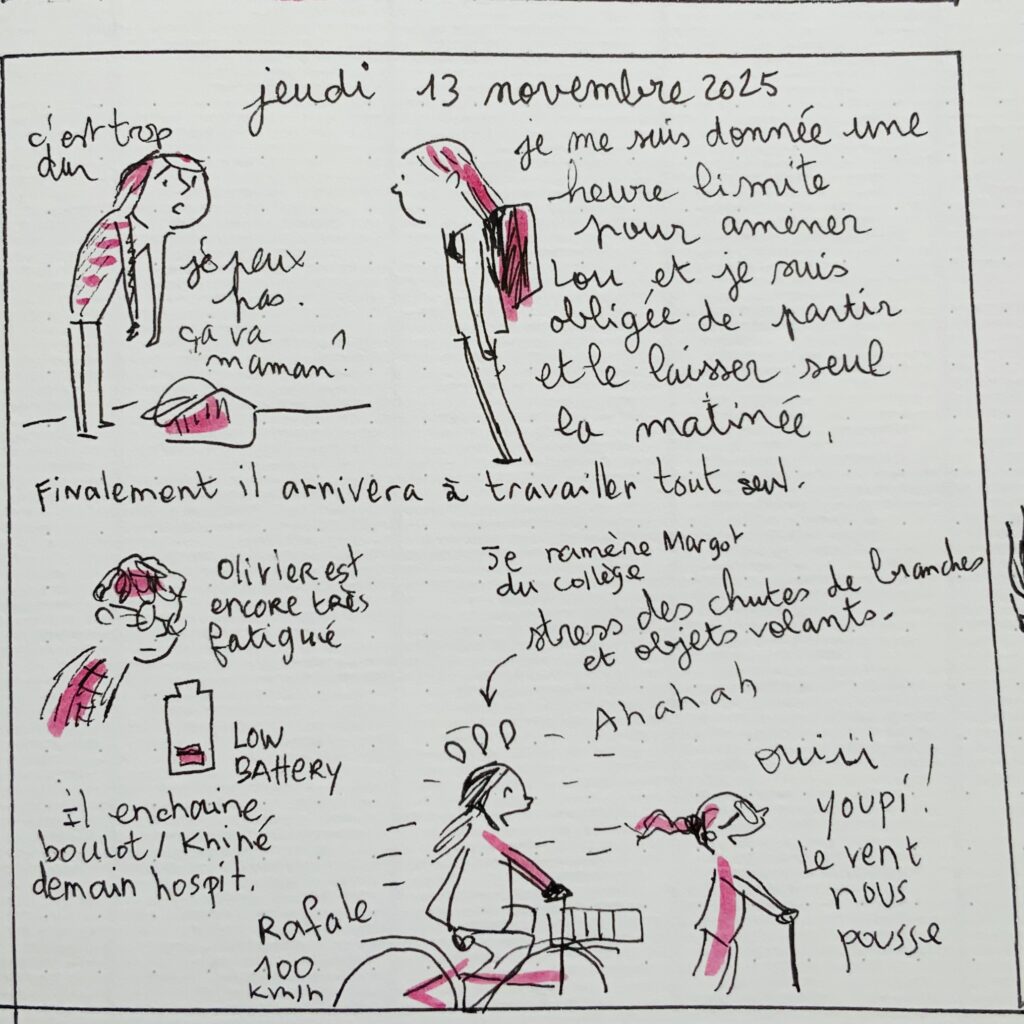 jeudi 13 novembre 2025
c'est trop
dur
j'peux
pas.
ça va
maman?
je me suis donnée une
heure limite
pour amener
Lou et je suis
obligée de partir
et le laisser seul
la matinée.
Finalement il arrivera à travailler tout seul.
Olivier est
encore très
fatigué
LOW
BATTERY
il enchaine
boulot / Khiné
demain hospit.
Je ramène Margot
du collège
stress des chutes de branches
et objets volants.
Ahahah
Rafale
100
km/h
ouiiii !
youpi!
Le vent
nous
pousse